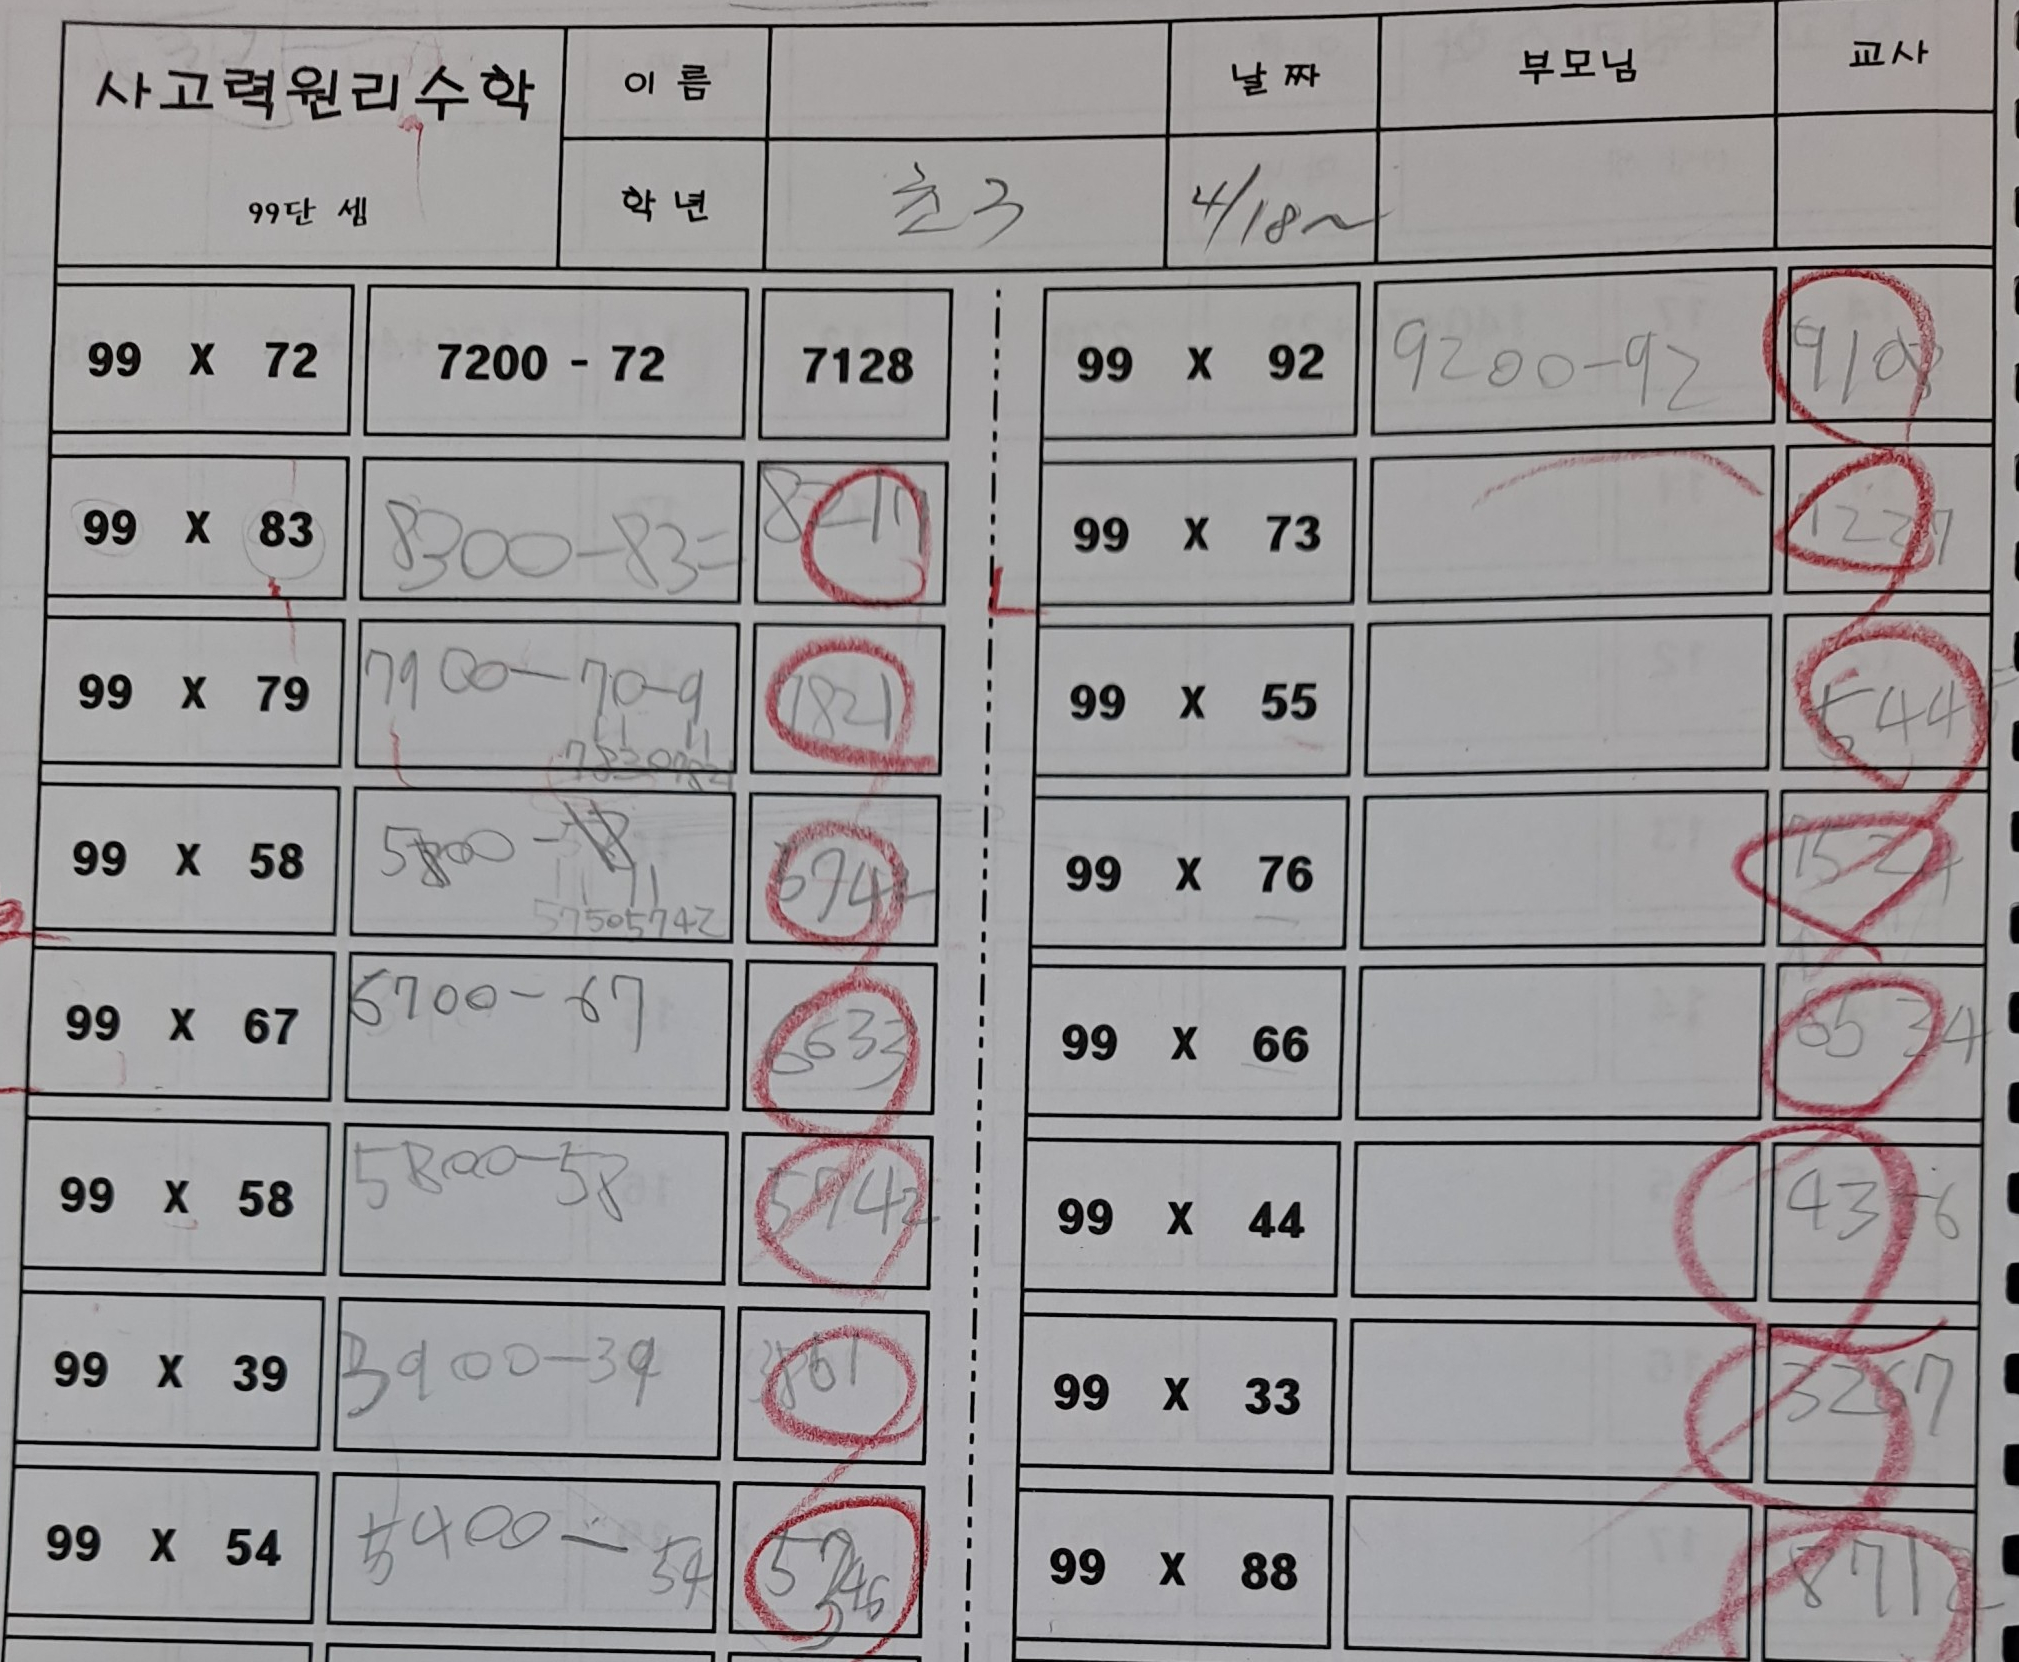 사고력원리수학 이 름 날 짜 부모님 교사
99단 셈 학 년 초3 4/18~
99 X 72 7200 - 72 7128 99 X 92 9200-92 9108
99 X 83 8300-83= 8217 99 X 73
99 X 79 7900-70-9 7821 99 X 55 5445
7830 7821
99 X 58 5800- 99 X 76 7524
5750 5742
99 X 67 6700-67 6633 99 X 66 6534
99 X 58 5800-58 5742 99 X 44
99 X 39 3900-39 3861 99 X 33 3267
99 X 54 5400-54 99 X 88 8712